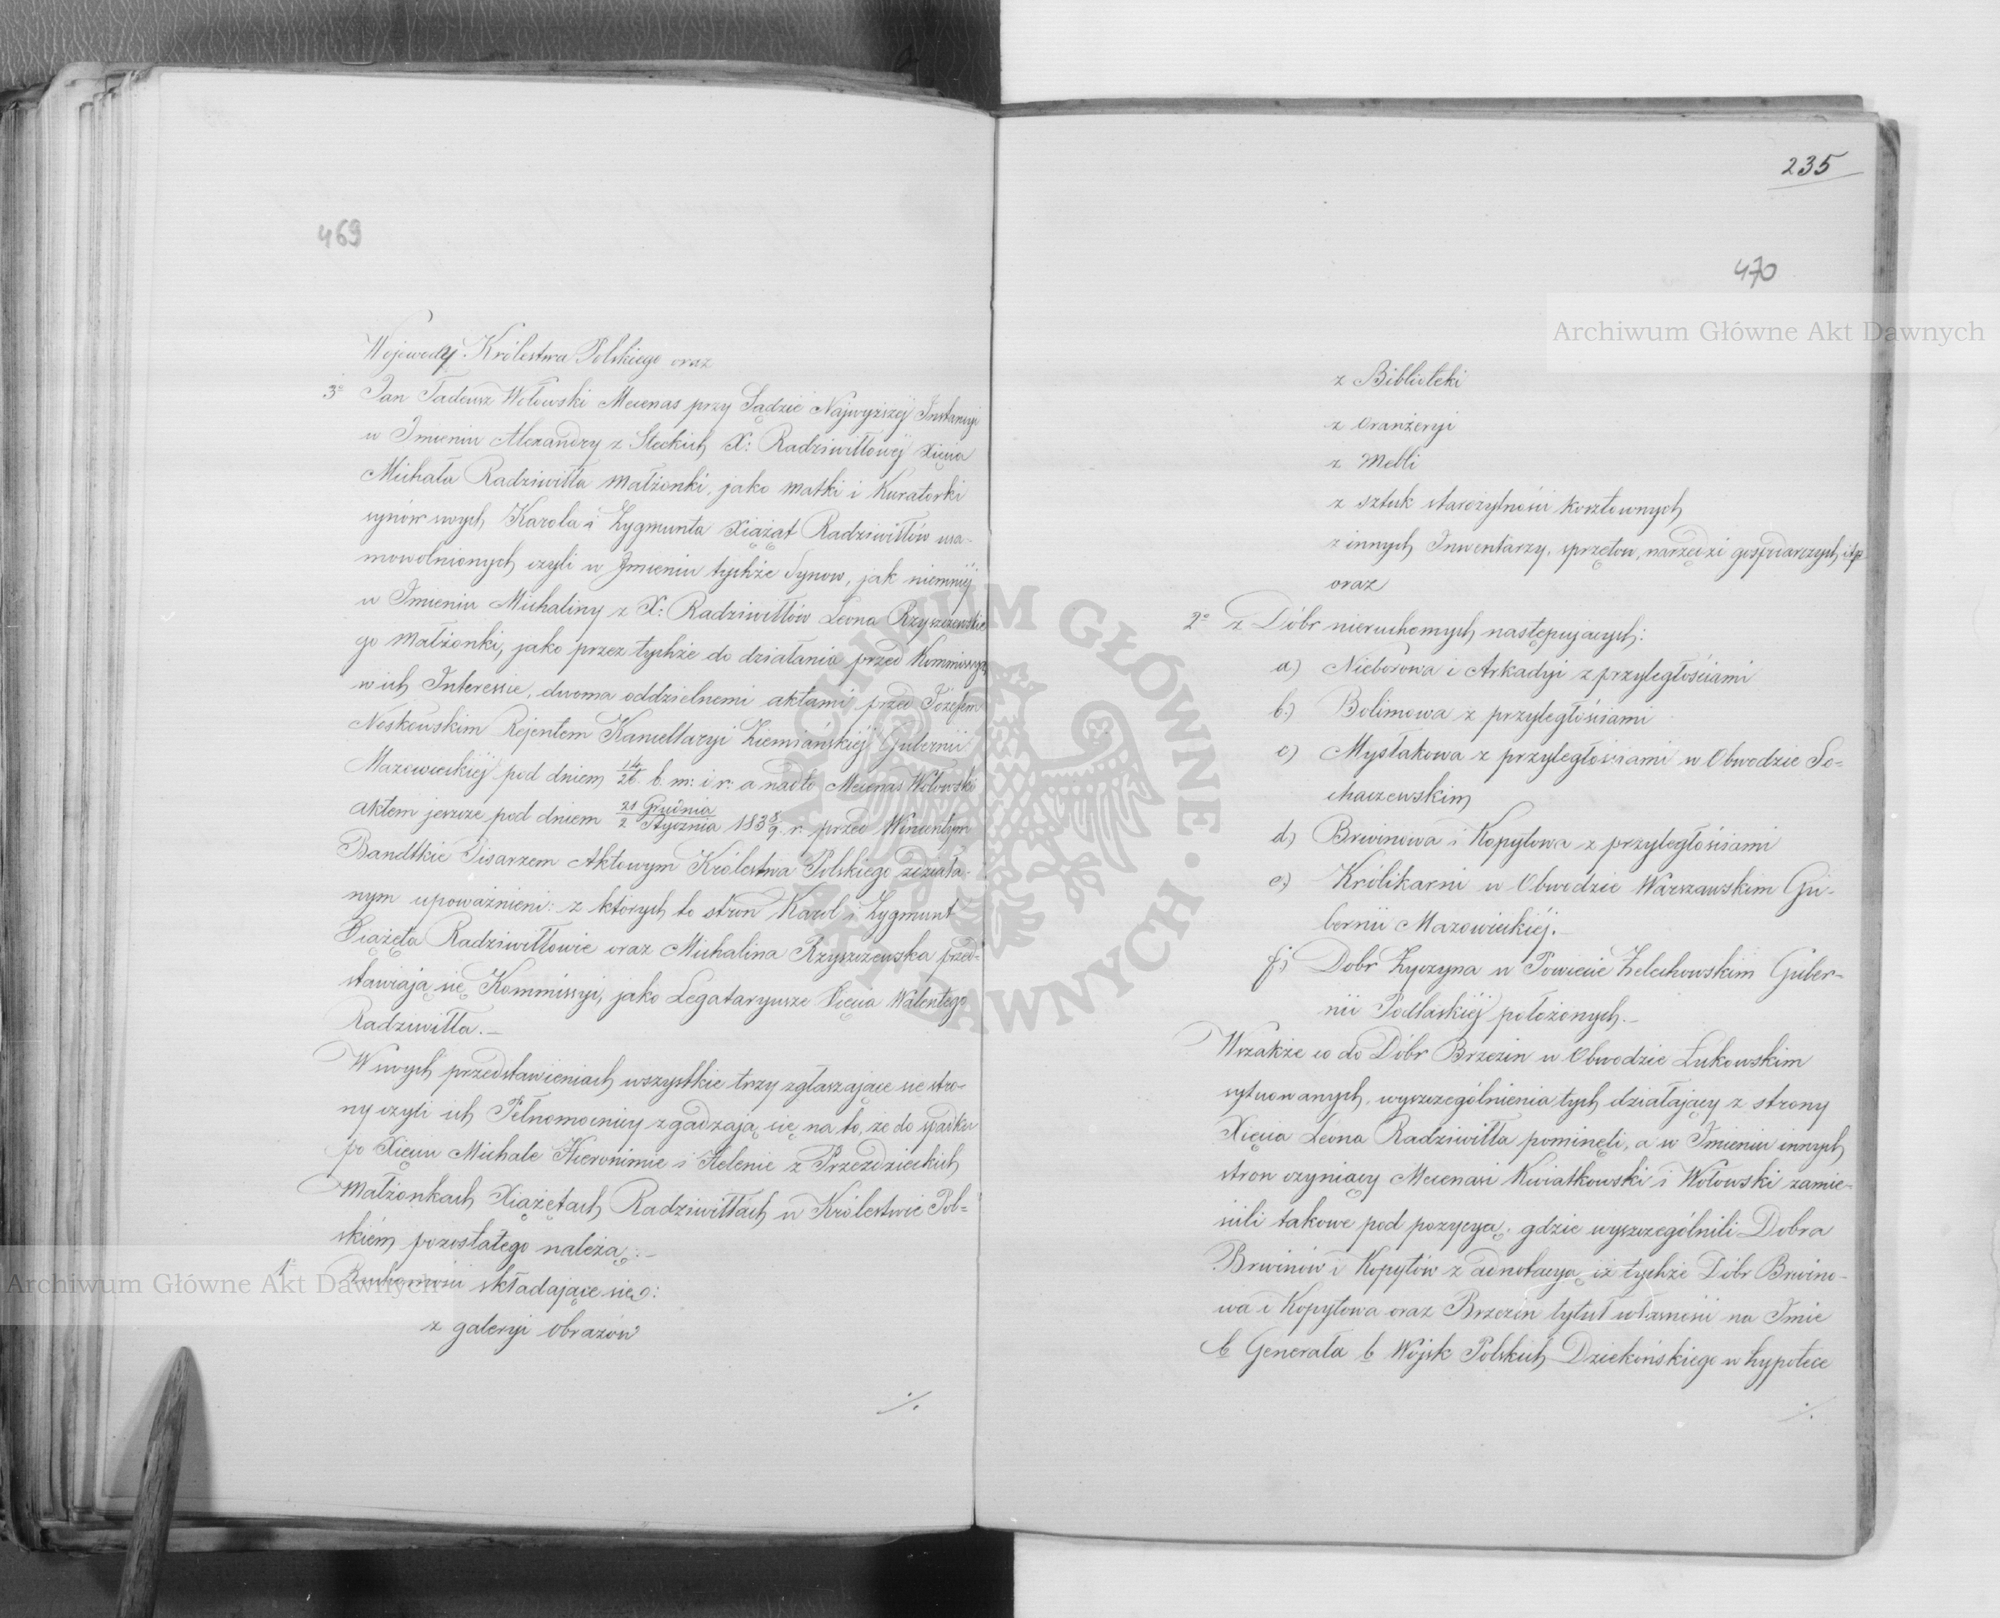 469
Wojewody Królestwa Polskiego oraz
3o Pan Tadeusz Wołowski Mecenas przy Sądzie Najwyższej Instancyi
w Imieniu Alexandry z Steckich X: Radziwiłłowej Xięcia
Michała Radziwiłła małżonki, jako matki i Kuratorki
synów swych Karola i Zygmunta Xiążąt Radziwiłłów usa-
mowolnionych czyli w Imieniu tychże Synow, jak niemniej
w Imieniu Michaliny z X: Radziwiłłów Leona Rzyszczewskie
go małżonki, jako przez tychże do działania przed Kommissyą
w ich Interessie, dwoma oddzielnemi aktami przed Józefem
Noskowskim Rejentem Kancellaryi Ziemiańskiej Gubernii
Mazowieckiej pod dniem 14/26 b. m: i r: a nadto Mecenas Wołowski
aktem jeszcze pod dniem 21 Grudnia/2 Stycznia 1838/9 r. przed Wincentym
Bandtkie Pisarzem Aktowym Królestwa Polskiego zeznała-
nym upoważnieni: z których to stron Karol i Zygmunt
Xiążęta Radziwiłłowie oraz Michalina Rzyszczewska przed-
stawiają się Kommissyi, jako Legataryusze Xięcia Walentego
Radziwiłła.–
W swych przedstawieniach wszystkie trzy zgłaszające się stro-
ny czyli ich Pełnomocnicy zgadzają się na to, że do spadku
po Xięciu Michale Hieronimie i Helenie z Przezdzieckich
Małżonkach Xiążętach Radziwiłłach w Królestwie Pol-
skiém pozostałego należą:–
1o Ruchomości składające się:
z galeryi obrazów
./.
235
470
z Biblioteki
z Oranżeryi
z Mebli
z sztuk starożytności kosztownych
z innych Inwentarzy, sprzętow, narzędzi gospodarczych itp
oraz
2o z Dóbr nieruchomych następujacych:
a) Nieborowa i Arkadyi z przyległościami
b.) Bolimowa z przyległościami
c) Mysłakowa z przyległościami w Obwodzie So-
chaczewskim
d) Brwinowa i Kopytowa z przyległościami
e) Królikarni w Obwodzie Warszawskim Gu-
bernii Mazowieckiéj.–
f) Dobr Życzyna w Powiecie Żelechowskim Guber-
nii Podlaskiéj położonych.–
Wszakże co do Dóbr Brzezin w Obwodzie Łukowskim
sytuowanych, wyszczególnienia tych działający z strony
Xięcia Leona Radziwiłła pominęli, a w Imieniu innych
stron czyniący Mecenasi Kwiatkowski i Wołowski zamie-
ścili takowe pod pozycyą, gdzie wyszczególnili Dobra
Brwinów i Kopytów z adnotacyą iż tychże Dóbr Brwino-
wa i Kopytowa oraz Brzezin tytuł własności na Imie
b Generała b Wójsk Polskich Dziekońskiego w hypotece
./.
Archiwum Główne Akt Dawnych
Archiwum Główne Akt Dawnych
ARCHIWUM GŁÓWNE AKT DAWNYCH